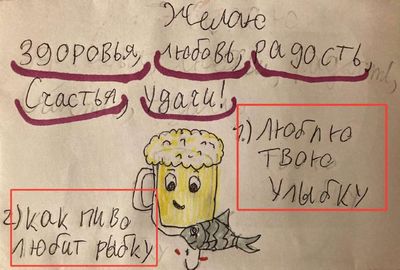 Желаю
здоровья, любовь, радость,
Счастья, удачи!
1.) люблю
твою
улыбку
2) как пиво
любит рыбку